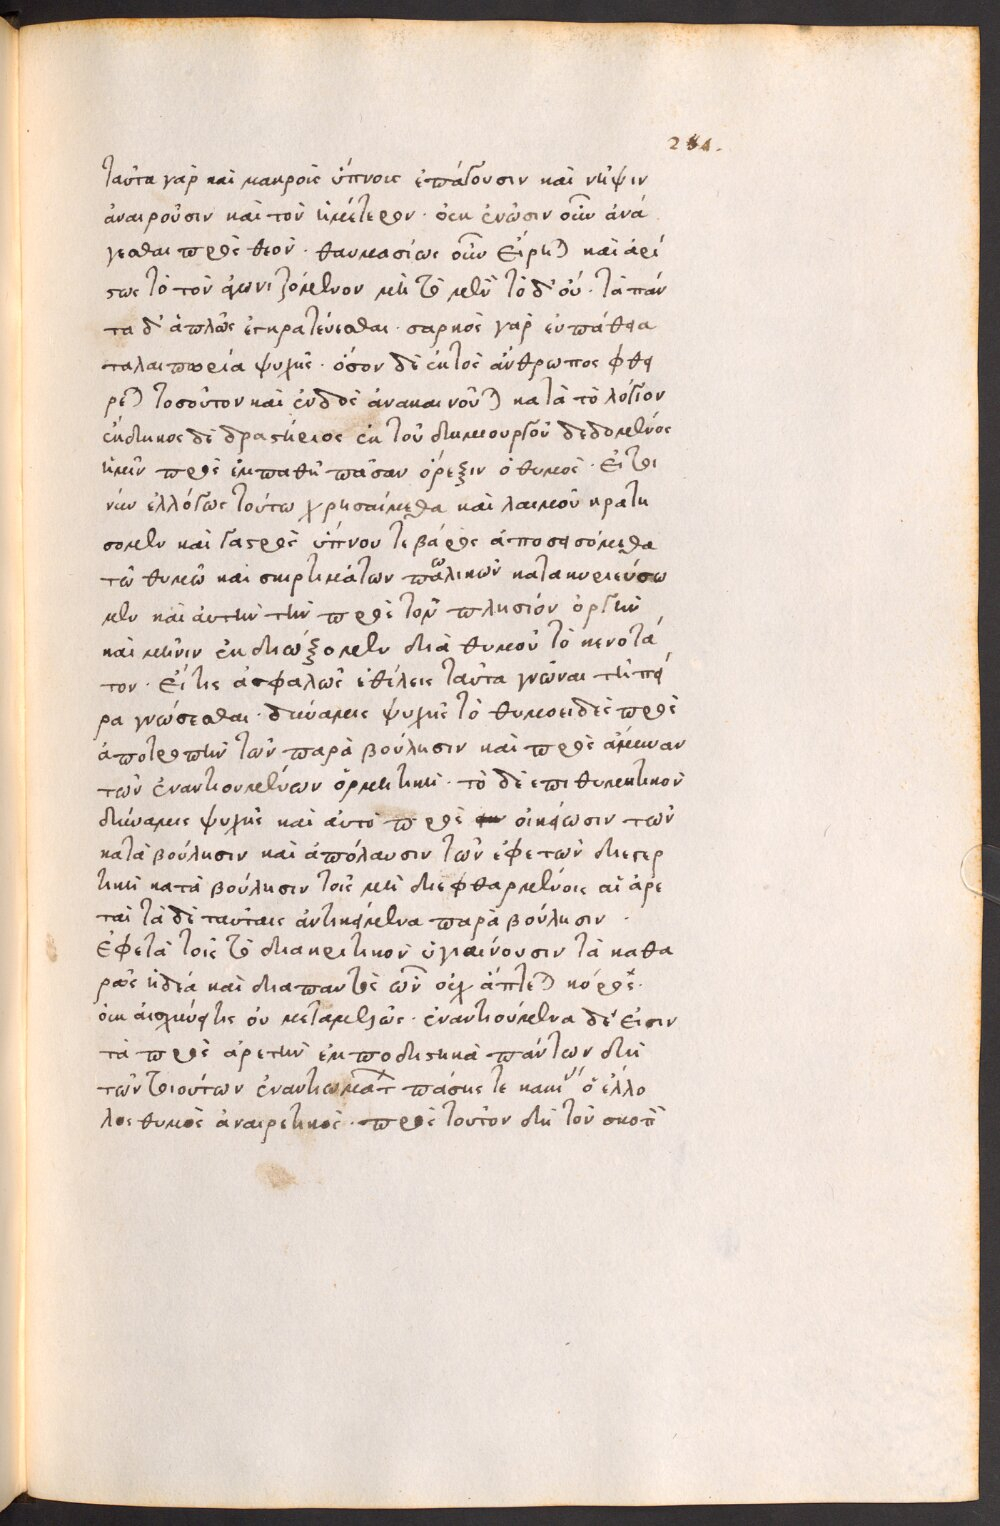 281.
ταῦτα γὰρ καὶ μακροῖς ὕπνοις ἐπάγουσιν καὶ νῆψιν
ἀναιροῦσιν καὶ τὸν ἡμέτερον · οὐκ ἐνῶσιν οὖν ἀνά
γεσθαι πρὸς θεόν · θαυμασίως οὖν εἴρη) καὶ ἀρί
στως τὸ τὸν ἀγωνιζόμενον μὴ τὸ μὲν τὸ δ' οὐ · τὰ πάν
τα δ' ἁπλῶς ἐγκρατεύεσθαι · σαρκὸς γὰρ εὐπάθεια
ταλαιπωρία ψυχῆς · ὅσον δὲ ἐκτὸς ἄνθρωπος φθεί
ρε) τοσοῦτον καὶ ἔνδος ἀνακαινοῦ) κατὰ τὸ λόγιον
ἔκδικος δὲ δραστήριος ἐκ τοῦ δημιουργοῦ δεδομένος
ἡμῖν πρὸς ἐμπαθῆ πᾶσαν ὄρεξιν ὁ θυμός · εἰ τοί
νυν ἐλλόγως τούτω χρησαίμεθα καὶ λαιμοῦ κρατή
σομεν καὶ γαστρὸς ὕπνου τε βάρος ἀποσεισόμεθα
τῶ θυμῶ καὶ σκιρτημάτων πωλικῶν κατακυριεύσω
μεν καὶ αὐτὴν τὴν πρὸς τὸν πλησίον ὀργὴν
καὶ μῆνιν ἐκδιώξομεν διὰ θυμοῦ τὸ κενοτά
τον · εἴ τις ἀσφαλῶς ἐθέλεις ταῦτα γνῶναι τῆ πεί
ρα γνώσεσθαι · δύναμις ψυχῆς τὸ θυμοειδὲς πρὸς
ἀποτροπὴν τῶν παρὰ βούλησιν καὶ πρὸς ἄμυναν
τῶν ἐναντιουμένων ὁρμητικὴ · τὸ δὲ ἐπιθυμητικὸν
δύναμις ψυχῆς καὶ αὐτὸ πρὸς οἰκείωσιν τῶν
κατὰ βούλησιν καὶ ἀπόλαυσιν τῶν ἐφετῶν διεγερ
τικὴ κατὰ βούλησιν τοῖς μὴ διεφθαρμένοις αἱ ἀρε
ταὶ τὰ δὲ ταύταις ἀντικείμενα παρὰ βούλησιν ·
ἐφετὰ τοῖς τὸ διακριτικὸν ὑγιαίνουσιν τὰ καθα
ρῶς ἡδέα καὶ διαπαντὸς ὧν οὐχ ἅπτε) κόρος ·
οὐκ αἰσχύνης οὐ μεταμελῶς · ἐναντιούμενα δέ εἰσιν
τὰ πρὸς ἀρετὴν ἐμποδιστικὰ πάντων δὴ
τῶν τοιούτων ἐναντιωμάτ πάσης τε κακί ὁ ἔλλο
γος θυμὸς ἀναιρετικός · πρὸς τοῦτον δὴ τὸν σκοπὸ